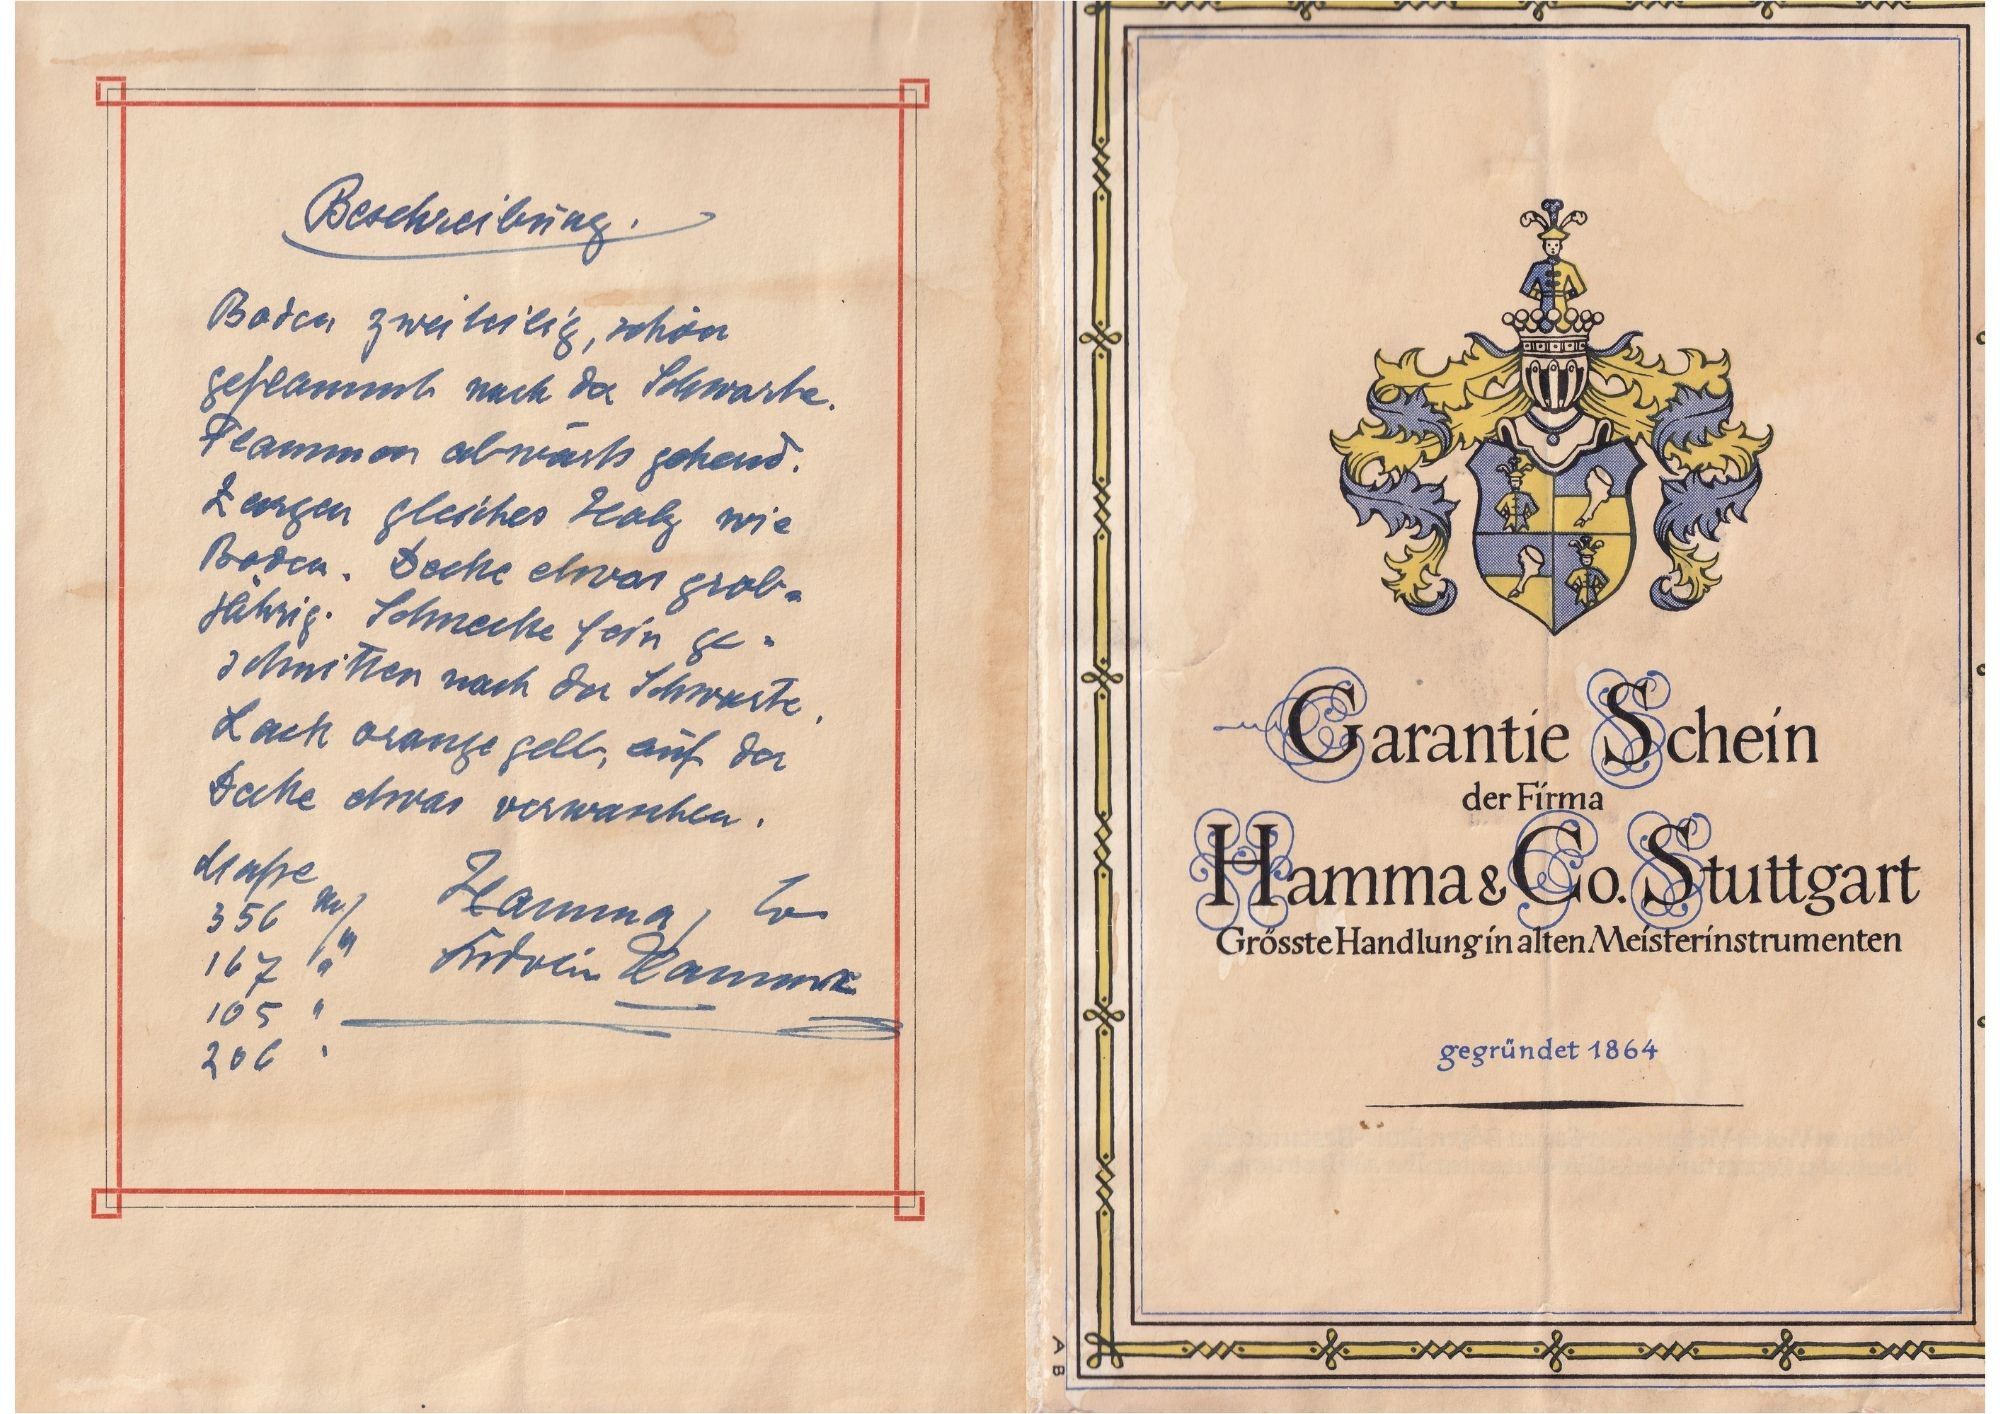 Beschreibung.
Boden zweiteilig, schön
geflammt nach der Schwarte.
Flammen abwärts gehend.
Zargen gleiches Holz wie
Boden. Decke etwas grob-
jährig. Schnecke fein ge-
schnitten nach der Schwarte.
Lack orange gelb, auf der
Decke etwas verwaschen.
Maße
356 m/m
167 "
105 "
206 "
Hamma, Co
Fridolin Hamma
Garantie Schein
der Firma
Hamma & Co. Stuttgart
Grösste Handlung in alten Meisterinstrumenten
gegründet 1864
A B